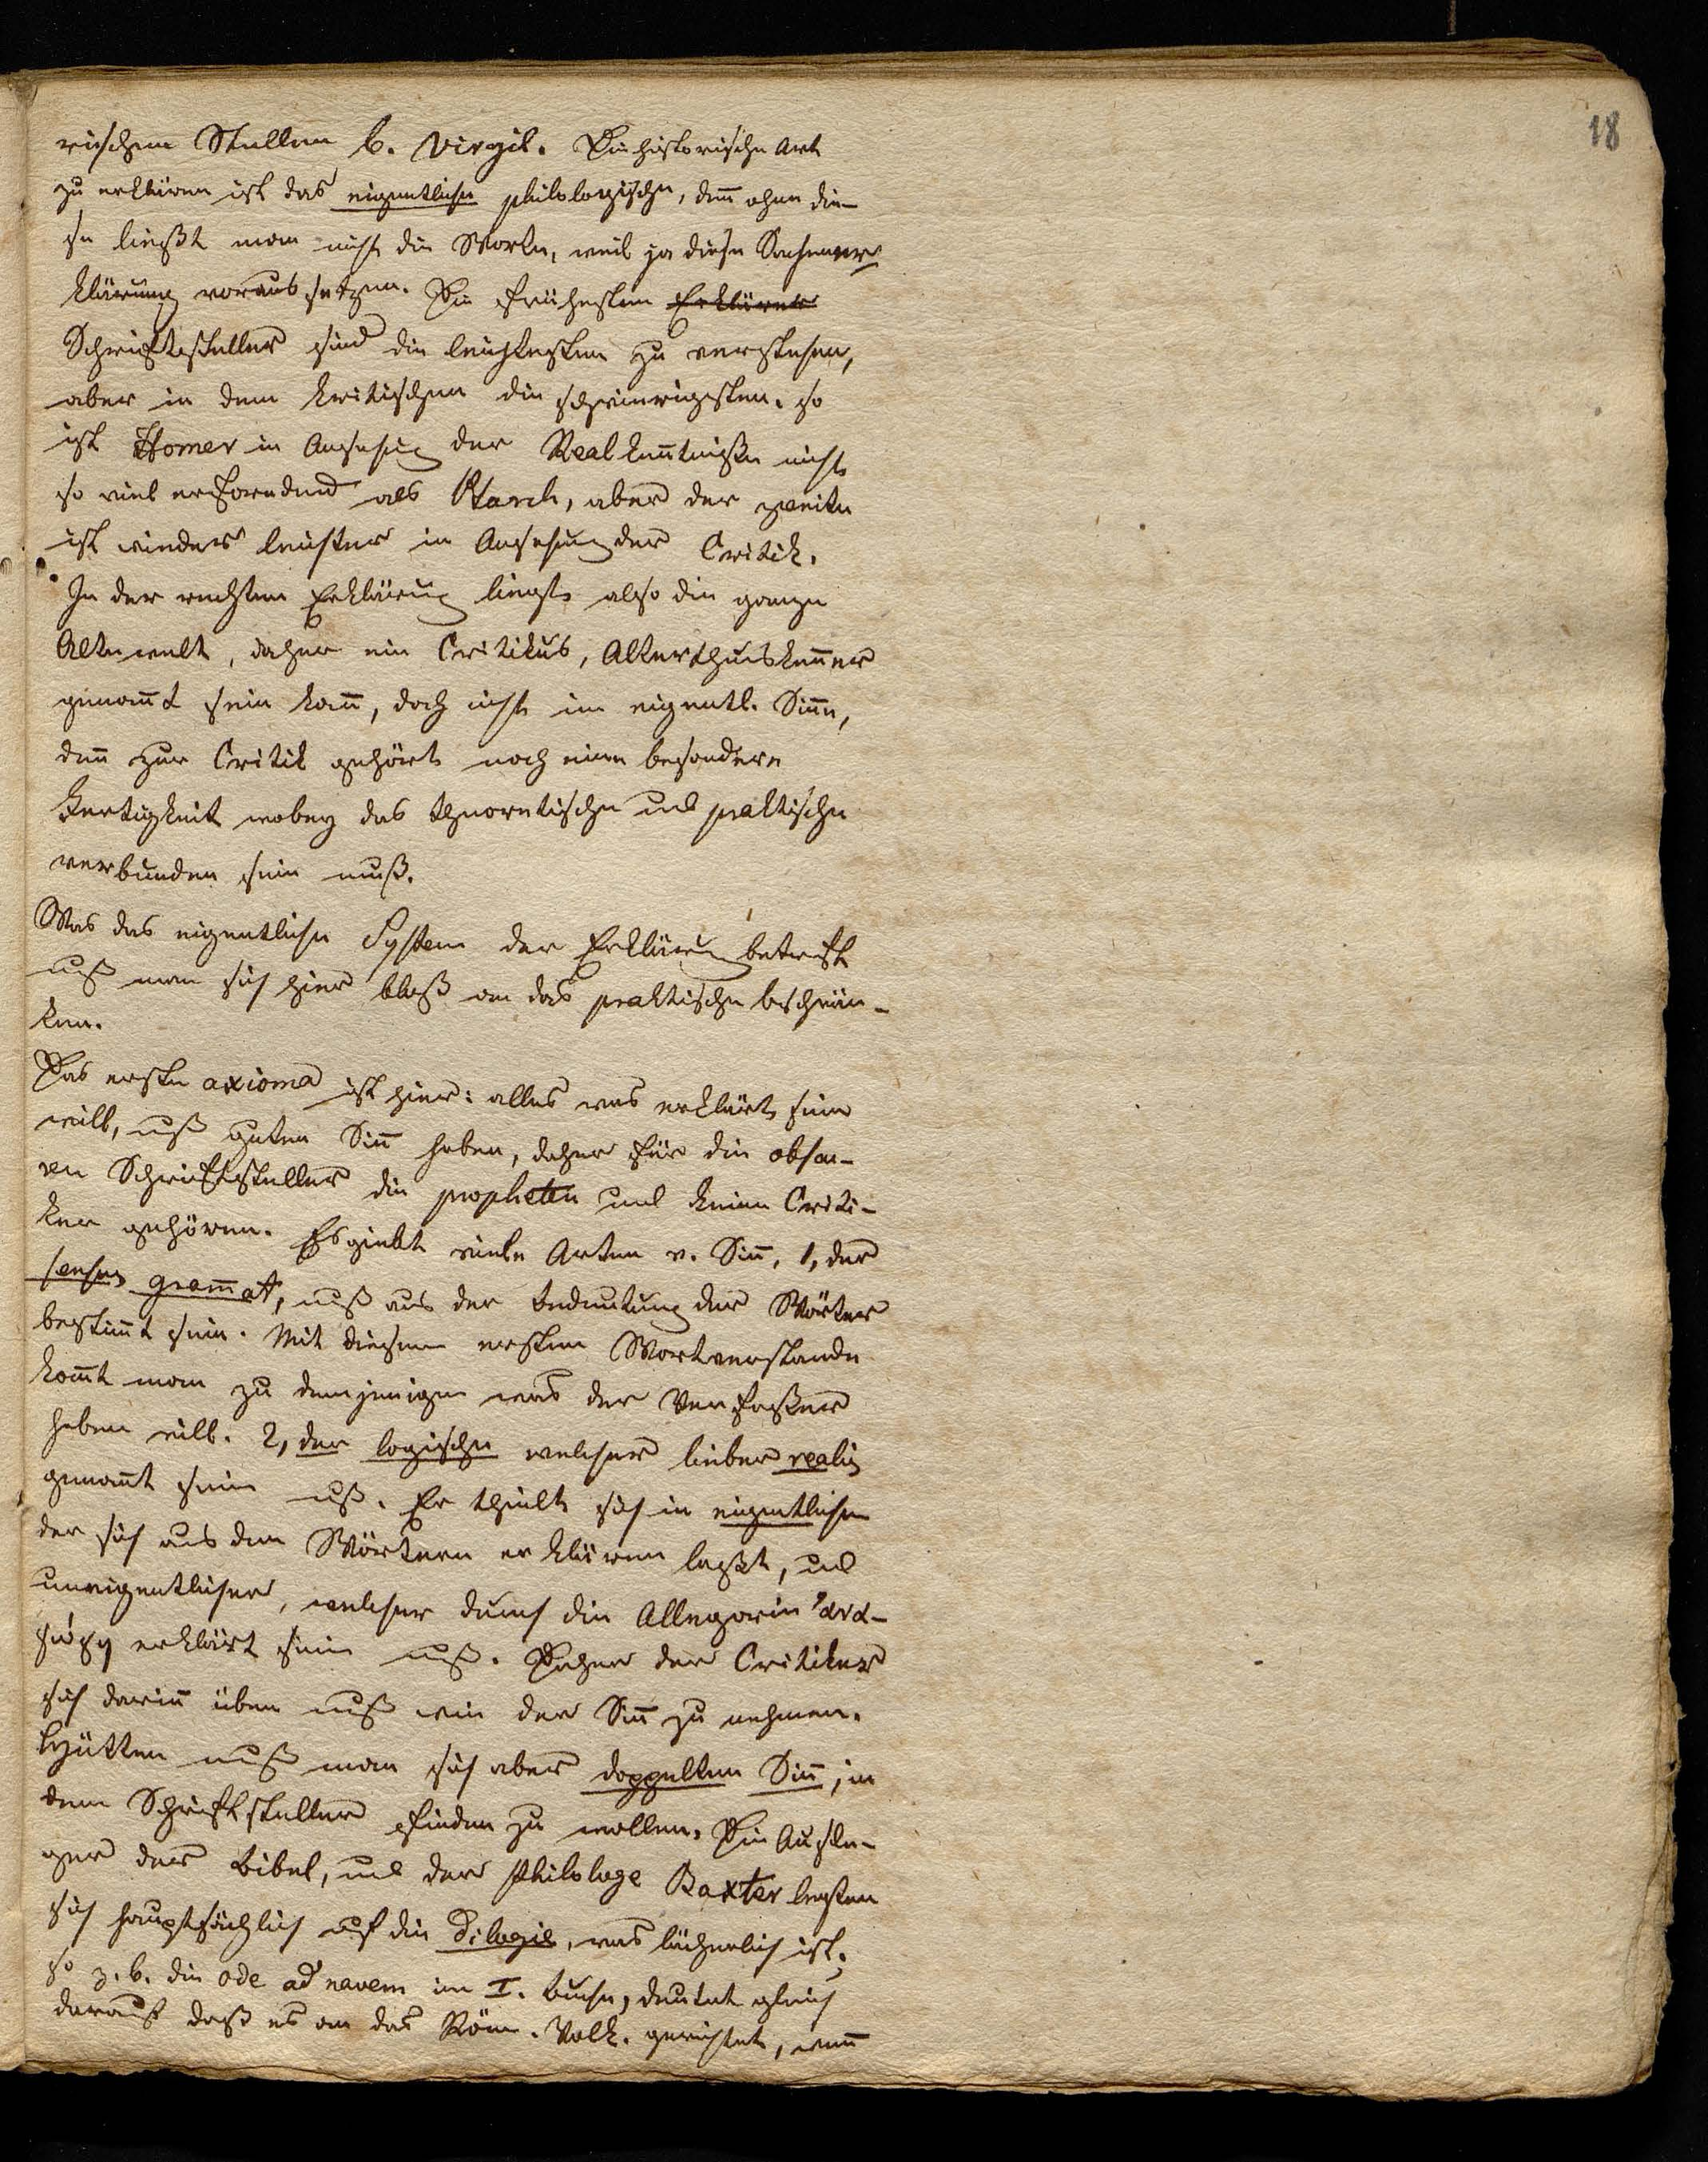 18
rischen Stellen b. Virgil. Die historische Art
zu erklären ist das eigentliche philologische, denn ohne die-
se ließt man nicht die Worte, weil ja diese Sachener-
klärung voraus setzen. Die frühesten Erklärer
Schriftsteller sind die leichtesten zu verstehen,
aber in dem kritischen die schwierigsten. so
ist Homer in Ansehung der Realkenntniße nicht
so viel erfordernd als Plutarch, aber der zweite
ist wieder leichter in Ansehung der Critik.
In der rechten Erklärung liegt also die ganze
Alte welt, daher ein Critikus, Alterthumskenner
genannt sein kann, doch nicht im eigentl. Sinne,
denn zur Critik gehört noch eine besondere
Fertigkeit wobey das theoretische und praktische
verbunden sein muß.
Was das eigentliche System der Erklärung betrift
muß man sich hier bloß an das praktische beschrän-
ken.
Das erste axioma ist hier: alles was erklärt sein
will, muß guten Sinn haben, daher für die obscu-
ren Schriftsteller die propheten und keine Criti-
ker gehören. Es giebt viele Arten v. Sinn, 1, der
sensus grammat, muß aus der Bedeutung der Wörter
bestimmt sein. Mit diesem ersten Wortverstande
kommt man zu demjenigen was der Verfaßer
haben will. 2, der logische welcher lieber realis
genannt sein muß. Er theilt sich in eigentlichen
der sich aus den Wörtern erklären laßt, und
uneigentlicher, welcher durch die Allegorie
erklärt sein muß. Daher der Critiker
sich darinn üben muß wie der Sinn zu nehmen.
Hütten muß man sich aber doppelten Sinn, in
dem Schriftsteller finden zu wollen. Die Ausle-
ger der Bibel, und der Philologe Baxter legten
sich hauptsächlich auf die Dilogie, was lächerlich ist.
so z. b. die Ode ad navem im I. Buche, deutet gleich
darauf daß es an das Röm. Volk. gerichtet, wenn